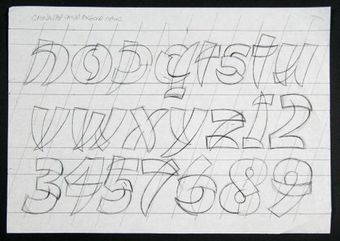 nopqrstu
vwxyz12
3457689